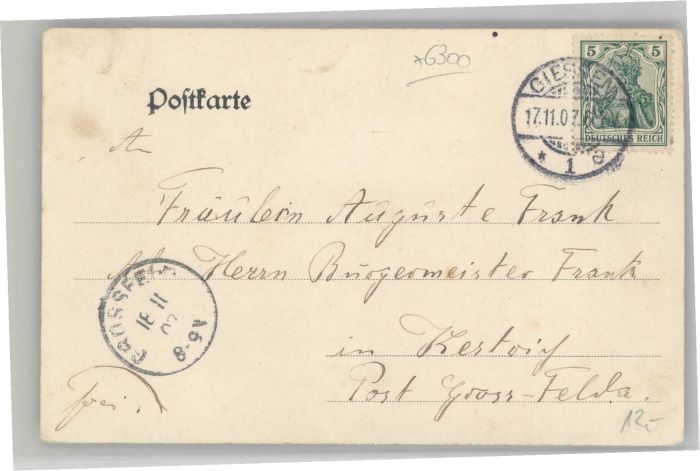 *6300
5 5
DEUTSCHES REICH
GIESSEN
17.11.07.
* 1 e
Postkarte
An
Fräulein Auguste Frank
Adr. Herrn Bürgermeister Frank
in Kestrich
Post Gross-Felda.
frei.
GROSSFELDA
18 11
07
V6-8
12,-